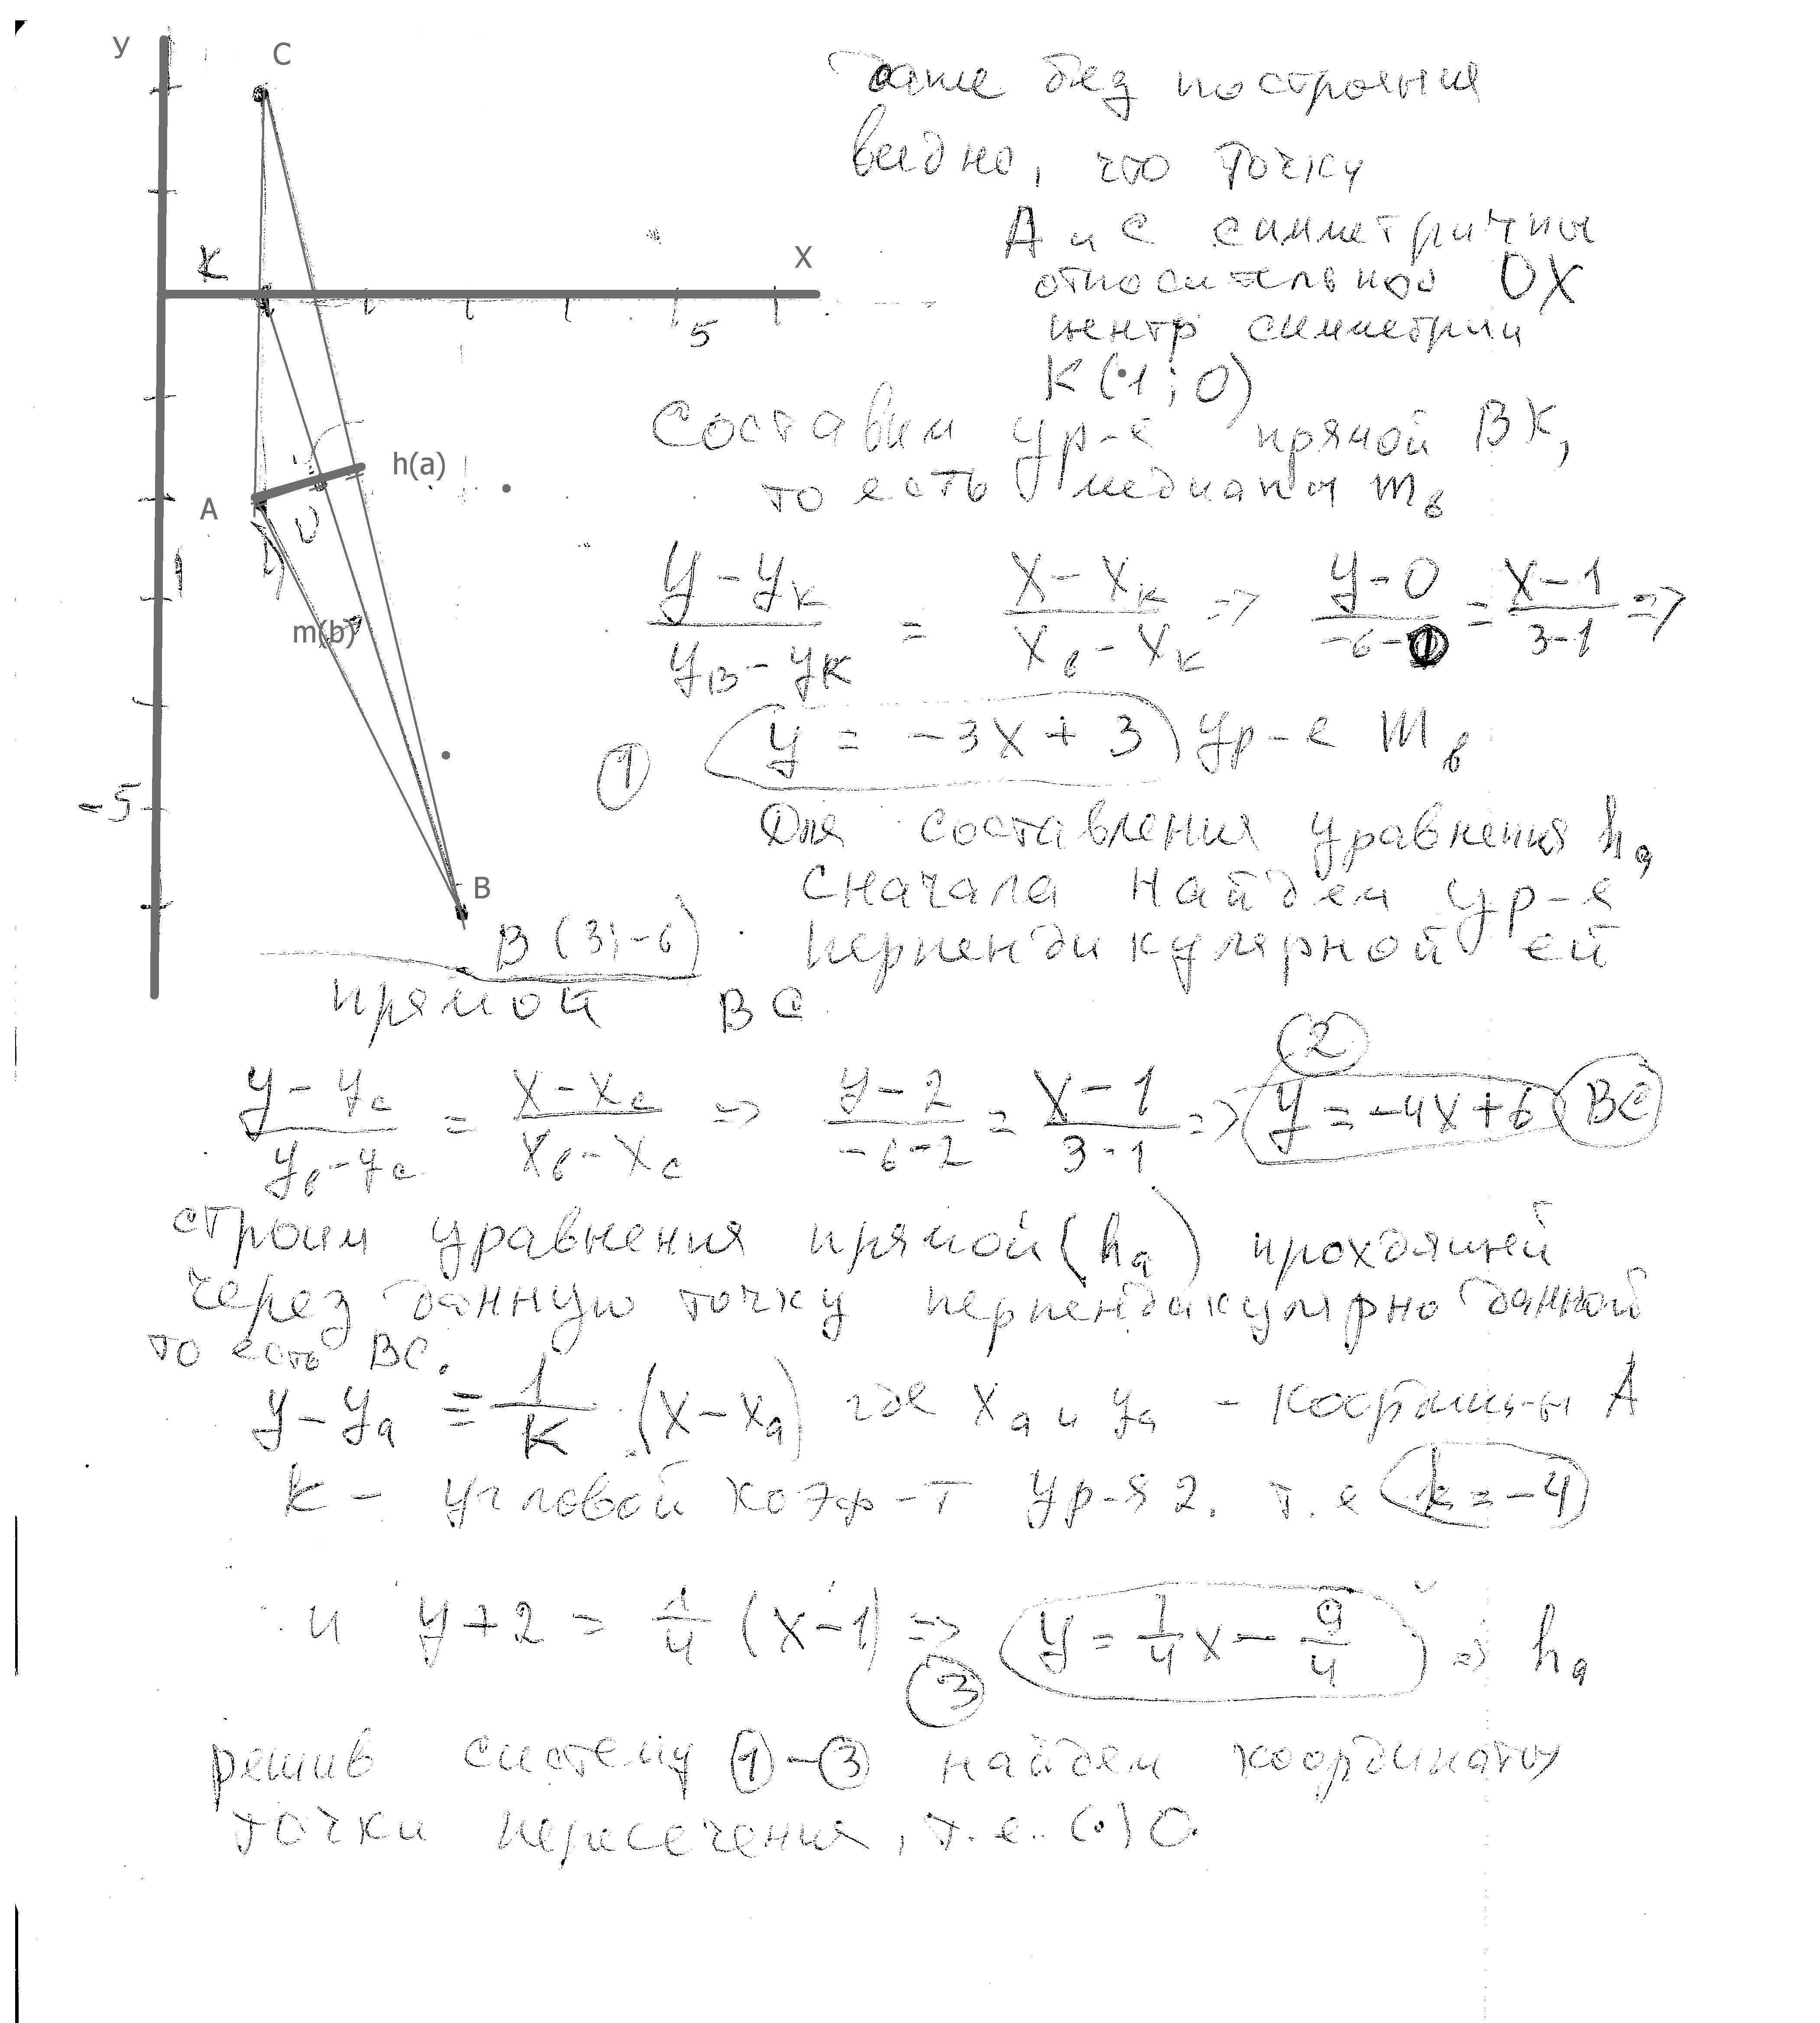 У
С
К
Х
5
h(a)
А
m(b)
-5
В
В (3;-6)
даже без построения
видно, что точки
А и С симметричны
относительно ОХ
центр симметрии
К (1; 0)
Составим ур-е прямой ВК,
то есть медианы mв
y - yк / yв - yк = x - xк / xв - xк => y - 0 / -6 - 0 = x - 1 / 3 - 1 =>
① y = -3x + 3 ур-е mв
Для составления уравнения ha
сначала найдем ур-е
перпендикулярной ей
прямой ВС
y - yc / yв - yc = x - xc / xв - xc => y - 2 / -6 - 2 = x - 1 / 3 - 1 => ② y = -4x + 6 ВС
строим уравнения прямой (ha) проходящей
через данную точку перпендикулярно данной
то есть ВС.
y - ya = - 1/k · (x - xa) где xa и ya - координ-ы А
k - угловой коэф-т ур-я 2. т.е k = -4
и y + 2 = 1/4 (x - 1) => ③ y = 1/4 x - 9/4 => ha
решив систему ① - ③ найдем координаты
точки пересечения, т.е. (·) О